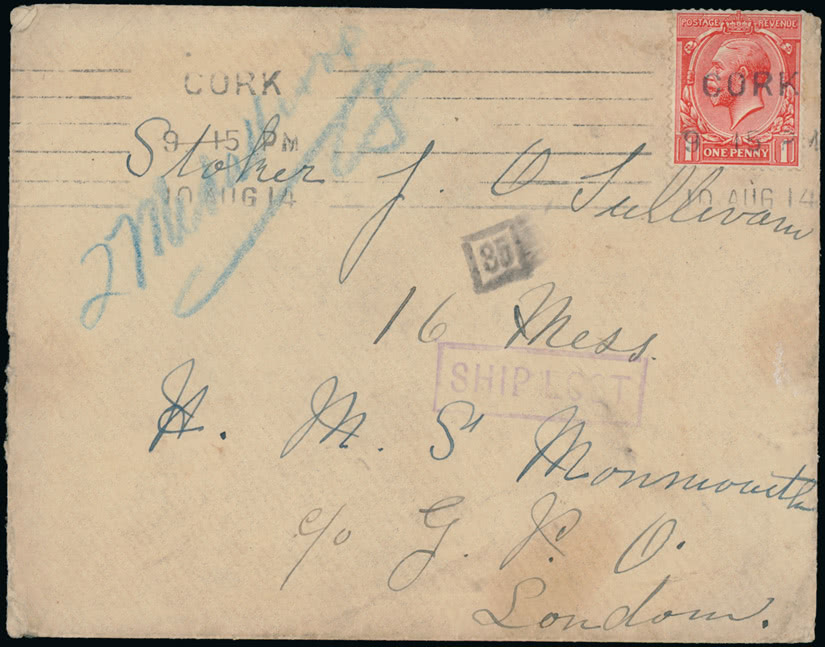 POSTAGE REVENUE
CORK CORK
9 15 PM 9 15 PM
10 AUG 14 10 AUG 14
1 ONE PENNY 1
Stoker J. O Sullivan
35
16 Mess.
SHIP LOST
H. M. S Monmouth
c/o G. P. O.
London.